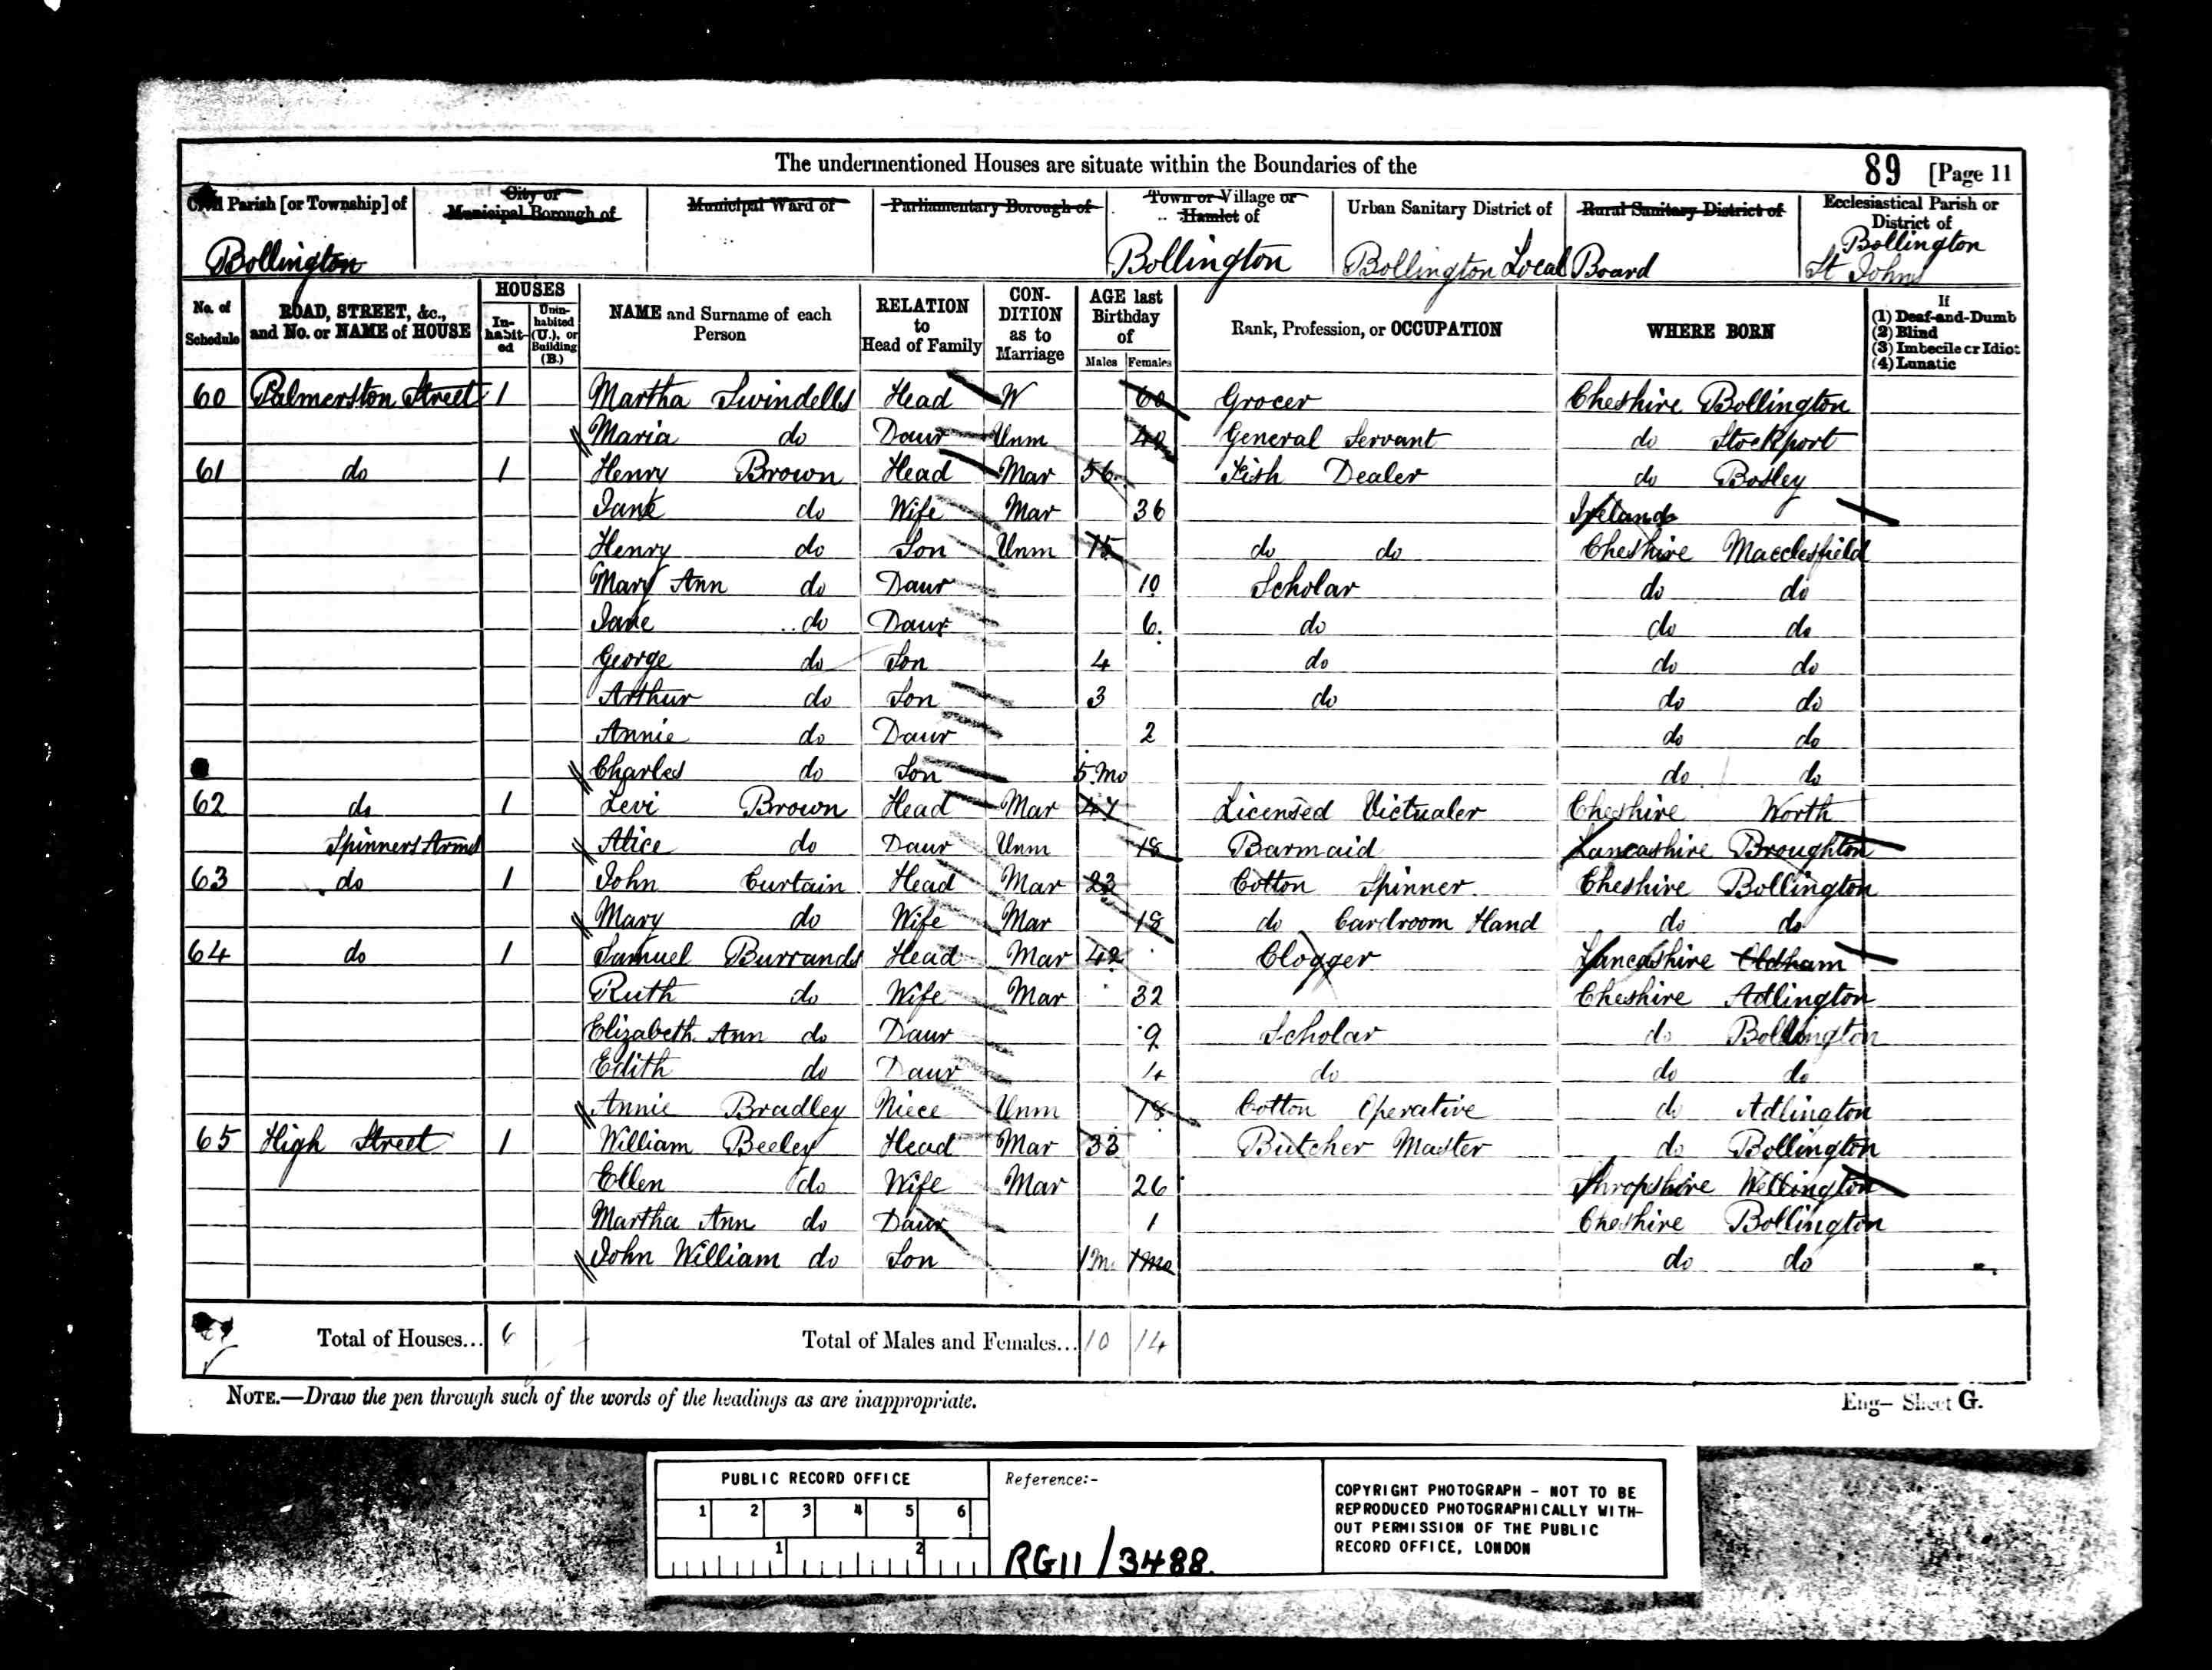 The undermentioned Houses are situate within the Boundaries of the 89 [Page 11
Civil Parish [or Township] of City or Municipal Borough of Municipal Ward of Parliamentary Borough of Town or Village or Hamlet of Urban Sanitary District of Rural Sanitary District of Ecclesiastical Parish or District of
Bollington Bollington Bollington Local Board Bollington St Johns
No. of Schedule ROAD, STREET, &c., and No. or NAME of HOUSE HOUSES Inhabited Uninhabited (U.), or Building (B.) NAME and Surname of each Person RELATION to Head of Family CONDITION as to Marriage AGE last Birthday of Males Females Rank, Profession, or OCCUPATION WHERE BORN If (1) Deaf-and-Dumb (2) Blind (3) Imbecile or Idiot (4) Lunatic
60 Palmerston Street 1 Martha Swindells Head W 60 Grocer Cheshire Bollington
Maria do Daur Unm 40 General Servant do Stockport
61 do 1 Henry Brown Head Mar 56 Fish Dealer do Bosley
Jane do Wife Mar 36 Ireland
Henry do Son Unm 15 do do Cheshire Macclesfield
Mary Ann do Daur 10 Scholar do do
Jane do Daur 6 do do do
George do Son 4 do do do
Arthur do Son 3 do do do
Annie do Daur 2 do do
Charles do Son 5 Mo do do
62 do 1 Levi Brown Head Mar 47 Licensed Victualer Cheshire Worth
Spinners Arms Alice do Daur Unm 18 Barmaid Lancashire Broughton
63 do 1 John Curtain Head Mar 23 Cotton Spinner Cheshire Bollington
Mary do Wife Mar 18 do Cardroom Hand do do
64 do 1 Samuel Burrands Head Mar 42 Clogger Lancashire Oldham
Ruth do Wife Mar 32 Cheshire Adlington
Elizabeth Ann do Daur 9 Scholar do Bollington
Edith do Daur 4 do do do
Annie Bradley Niece Unm 18 Cotton Operative do Adlington
65 High Street 1 William Beeley Head Mar 33 Butcher Master do Bollington
Ellen do Wife Mar 26 Shropshire Wellington
Martha Ann do Daur 1 Cheshire Bollington
John William do Son 1 Mo 1 Mo do do
Total of Houses... 6 Total of Males and Females... 10 14
NOTE.—Draw the pen through such of the words of the headings as are inappropriate.
Eng— Sheet G.
PUBLIC RECORD OFFICE
1 2 3 4 5 6
1 2
Reference:-
RG11/3488.
COPYRIGHT PHOTOGRAPH - NOT TO BE
REPRODUCED PHOTOGRAPHICALLY WITH-
OUT PERMISSION OF THE PUBLIC
RECORD OFFICE, LONDON